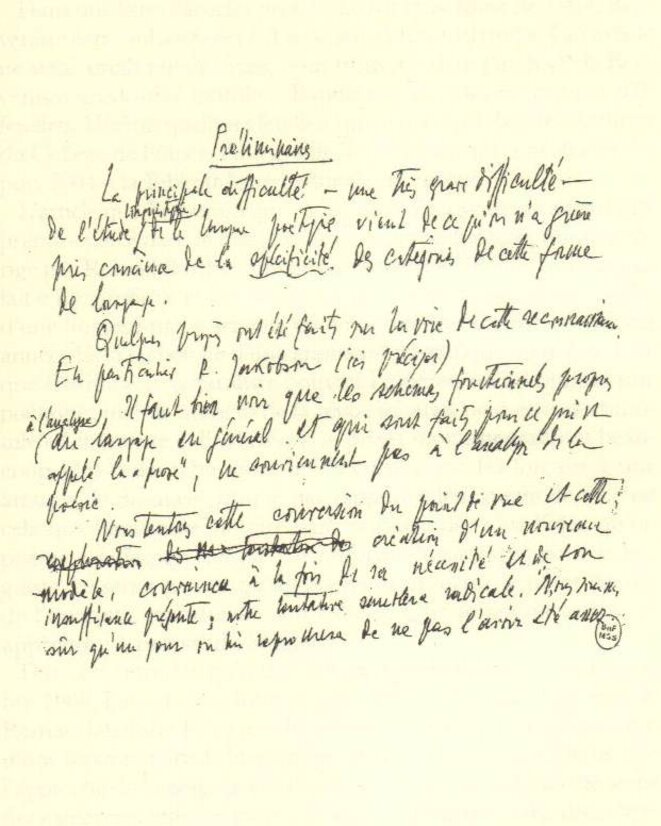 Préliminaires
La principale difficulté – une très grave difficulté –
de l'étude linguistique de la langue poétique vient de ce qu'on n'a guère
pris conscience de la spécificité des catégories de cette forme
de langage.
Quelques progrès ont été faits sur la voie de cette reconnaissance.
En particulier R. Jakobson (ici préciser)
Il faut bien voir que les schèmes fonctionnels propres
à l'analyse du langage en général et qui sont faits pour ce qui est
appelé la "prose", ne conviennent pas à l'analyse de la
poésie.
Nous tentons cette conversion du point de vue et cette
exploration création d'un nouveau
modèle, convaincu à la fois de sa nécessité et de son
insuffisance présente ; notre tentative semblera radicale. Nous sommes
sûr qu'un jour on lui reprochera de ne pas l'avoir été assez.
BnF
MSS